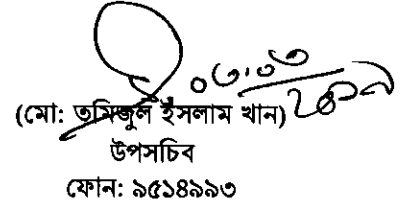 (মো: তমিজুল ইসলাম খান)
উপসচিব
ফোন: ৯৫১৪৯৯৩